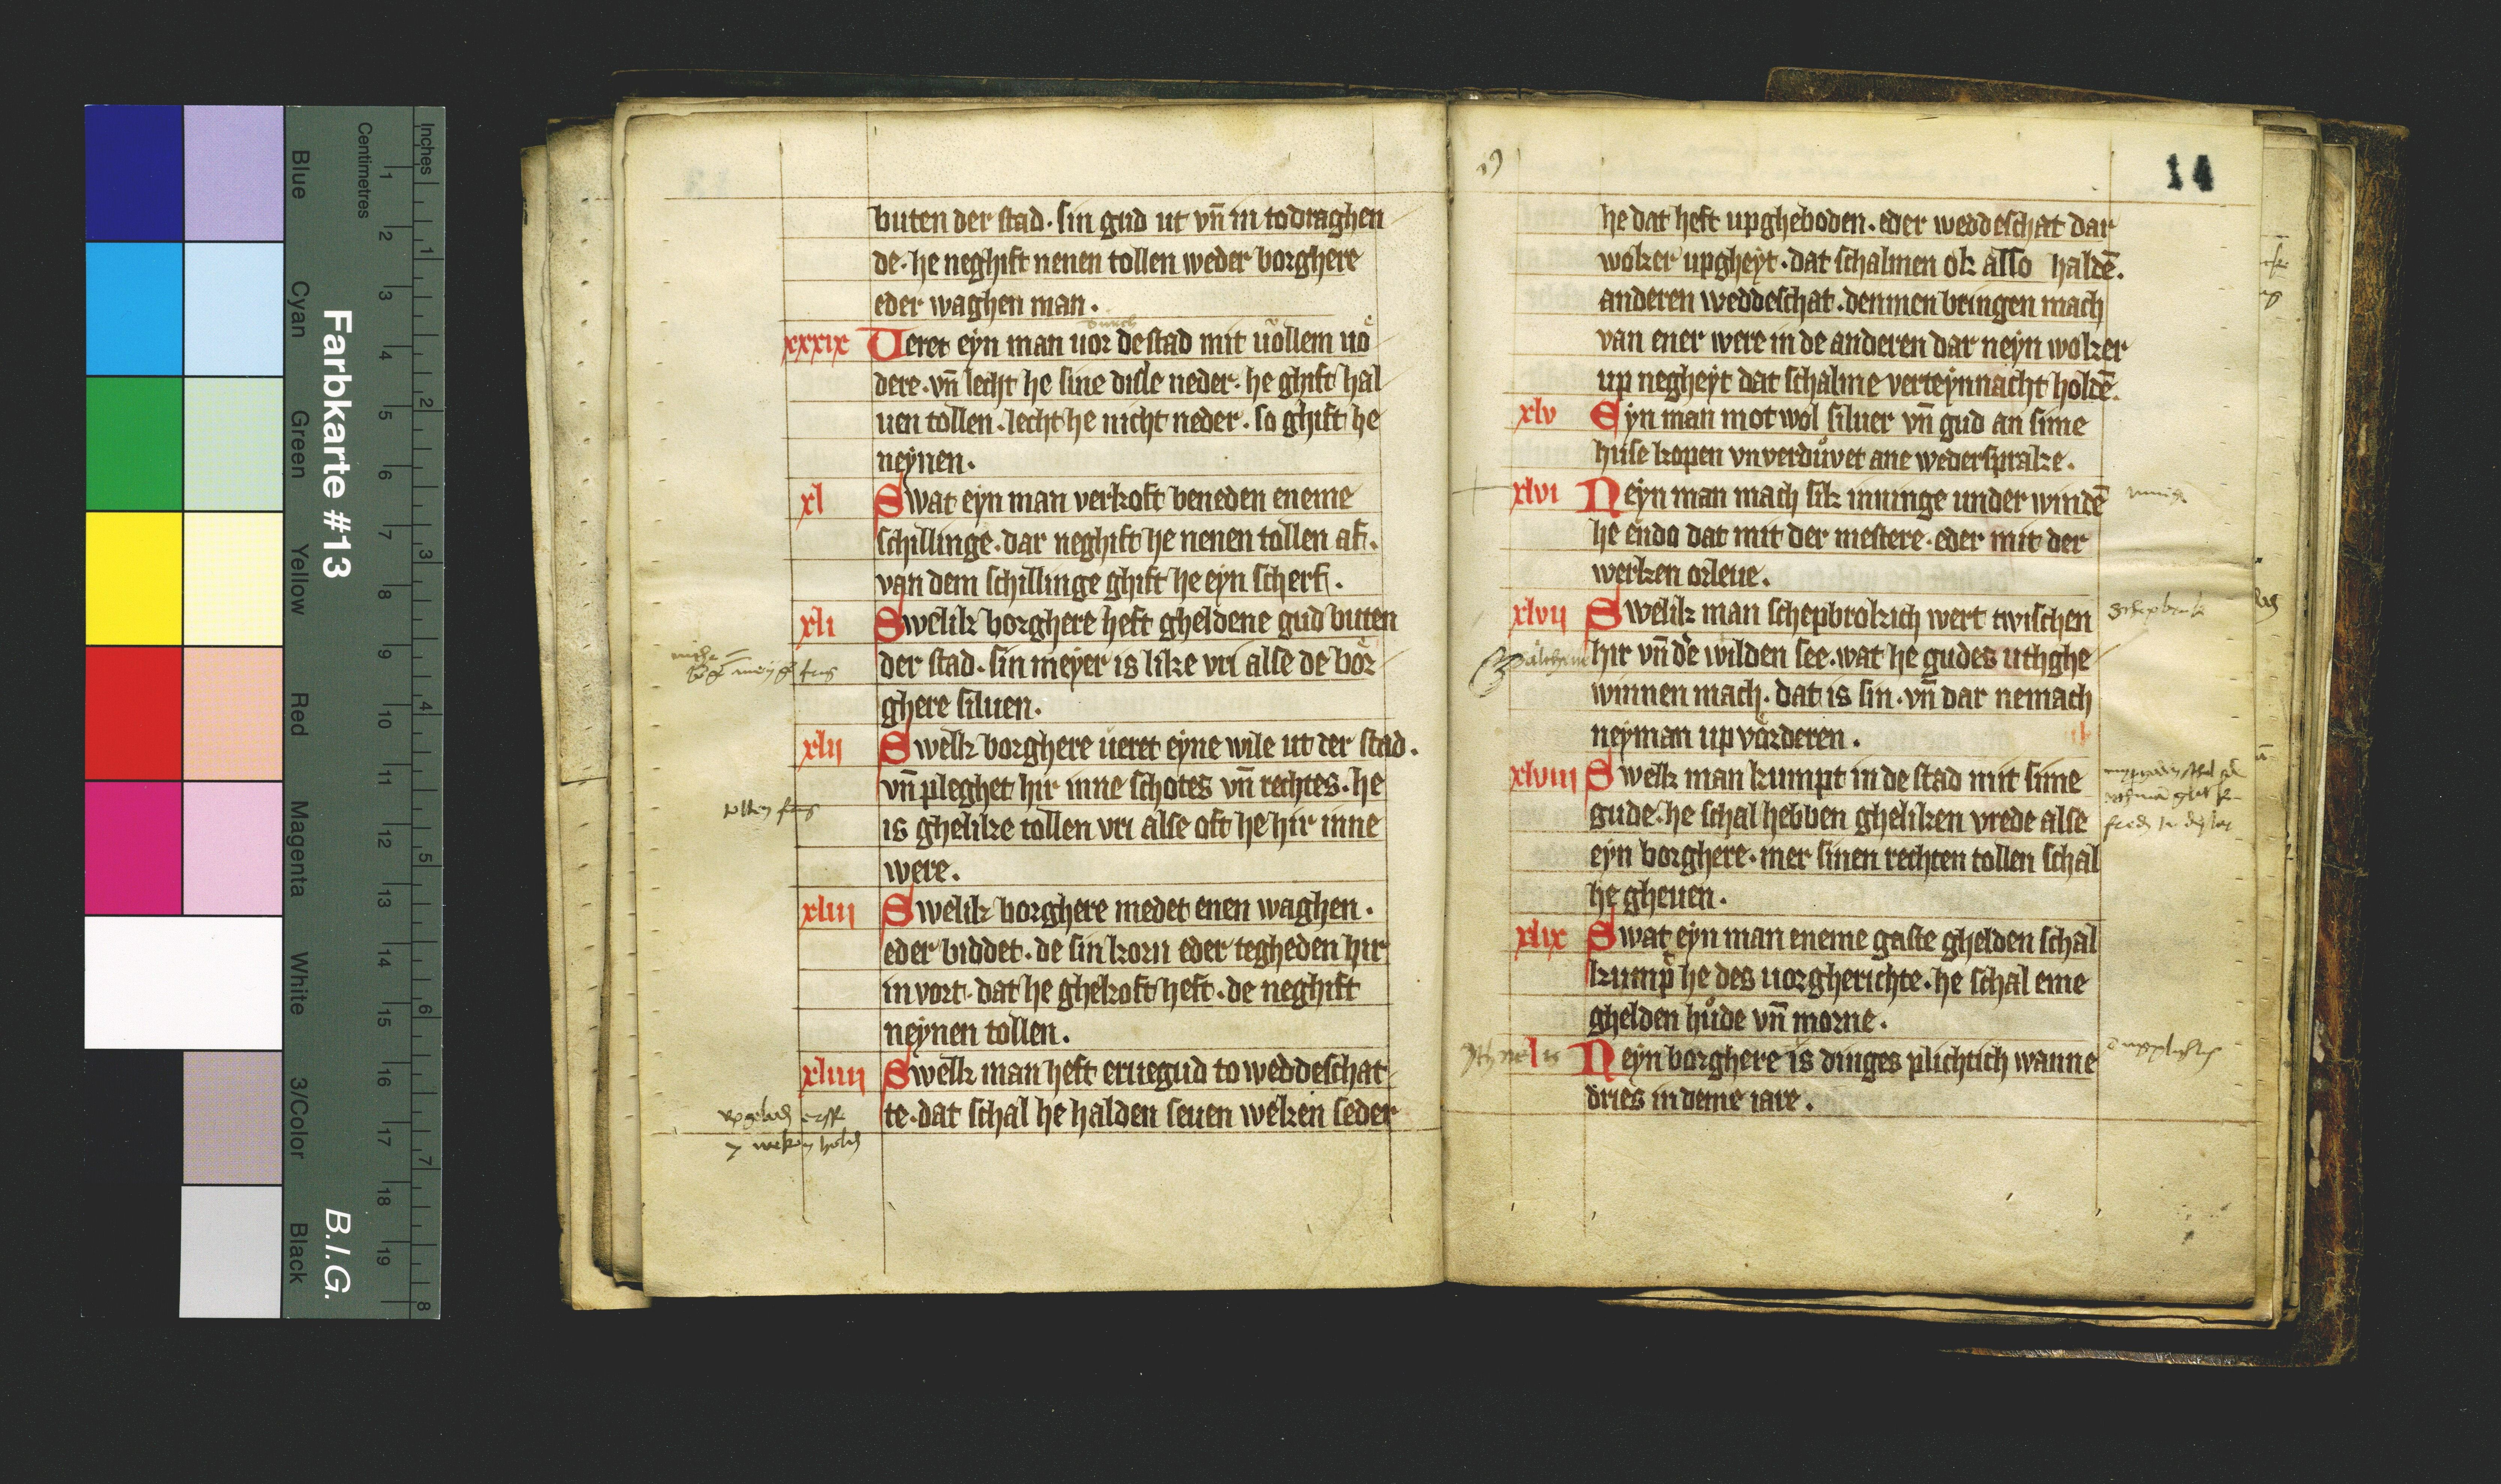 buten der stad · sin gud ut vn̄ in todraghen
de · he neghift nenen tollen weder borghere
eder waghen man ·
durch
xxxix Ueret eẏn man uor de stad mit uollem uo
dere · vn̄ lecht he sine disle neder · he ghift hal
uen tollen · lecht he nicht neder · so ghift he
neẏnen ·
xl Swat eẏn man verkoft beneden eneme
schillinge · dar neghift he nenen tollen af ·
van dem schillinge ghift he eẏn scherf ·
xli Swelik borghere heft gheldene gud buten
der stad · sin meẏer is like vri alse de bor
ghere siluen ·
xlii Swelk borghere ueret eẏne wile ut der stad ·
vn̄ pleghet hir inne schotes vn̄ rechtes · he
is ghelike tollen vri alse oft he hir inne
were ·
xliii Swelik borghere medet enen waghen ·
eder biddet · de sin korn eder tegheden hir
in vort · dat he ghekoft heft · de neghift
neẏnen tollen ·
xliiii Swelk man heft eruegud to weddeschat
te · dat schal he halden seuen weken seder
14
he dat heft upgheboden · eder weddeschat dar
woker upgheẏt · dat schalmen ok also haldē ·
anderen weddeschat · denmen bringen mach
van ener were in de anderen dar neẏn woker
up negheẏt dat schalme verteẏnnacht holdē ·
xlv Eẏn man mot wol siluer vn̄ gud an sime
huse kopen vnverduͦvet ane wedersprake ·
xlvi Neẏn man mach sik inninge under windē
he endo dat mit der mestere · eder mit der
werken orleue ·
xlvii Swelik man schepbrokich wert twischen
schepbrok
hir vn̄ de wilden see · wat he gudes uthghe
winnen mach · dat is sin · vn̄ dar nemach
neẏman up vorderen ·
xlviii Swelk man kumpt in de stad mit sime
gude · he schal hebben gheliken vrede alse
eẏn borghere · mer sinen rechten tollen schal
he gheuen ·
xlix Swat eẏn man eneme gaste ghelden schal
kump he des uorgherichte · he schal eme
ghelden huͦde vn̄ morne ·
l Neẏn borghere is dinges plichtich wanne
dries in deme iare ·
Inches
Centimetres
1 2 3 4 5 6 7 8 9 10 11 12 13 14 15 16 17 18 19
1 2 3 4 5 6 7 8
Farbkarte #13
B.I.G.
Blue
Cyan
Green
Yellow
Red
Magenta
White
3/Color
Black